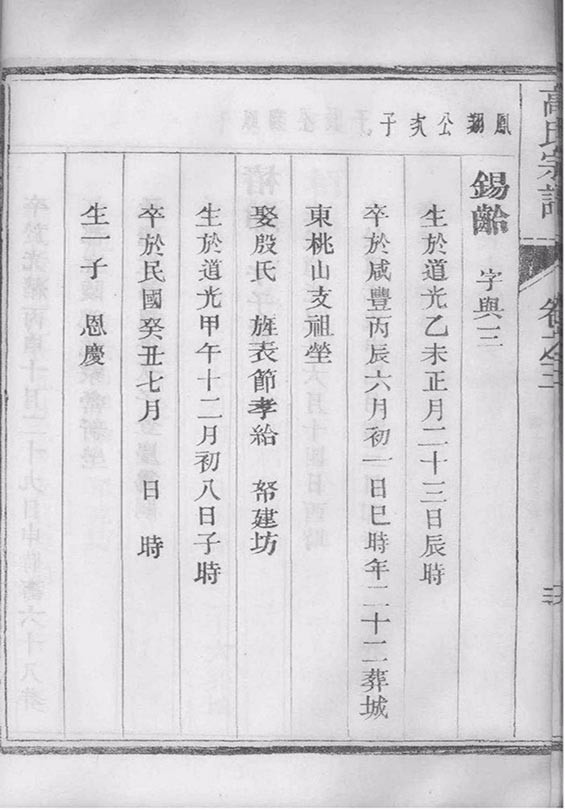 高氏宗譜
鳳翽公次子
錫齡 字與三
生於道光乙未正月二十三日辰時
卒於咸豐丙辰六月初一日巳時年二十二葬城
東桃山支祖塋
娶殷氏 旌表節孝給 帑建坊
生於道光甲午十二月初八日子時
卒於民國癸丑七月 日 時
生一子 恩慶